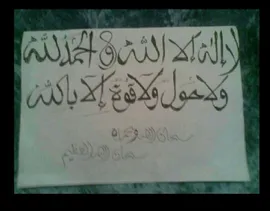 لا إله إلا الله و الحمد لله
ولا حول ولا قوة إلا بالله
سبحان الله وبحمده
سبحان الله العظيم